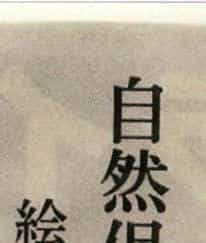 自然
絵